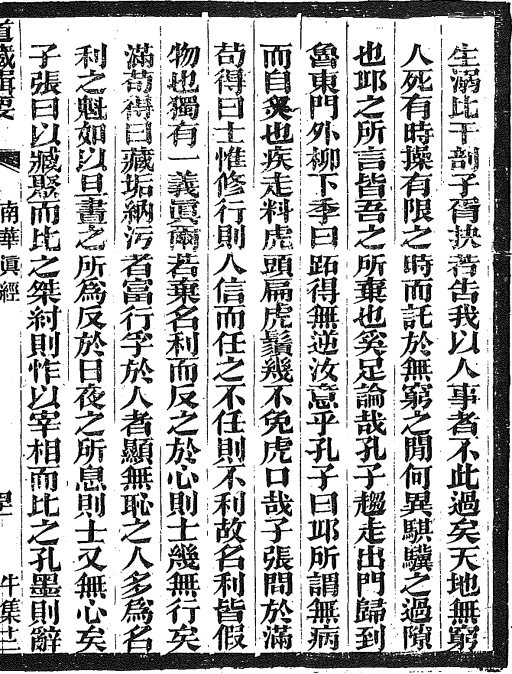 生溺比干剖子胥抉若告我以人事者不此過矣天地無窮
人死有時操有限之時而託於無窮之閒何異騏驥之過隙
也邱之所言皆吾之所棄也奚足論哉孔子趨走出門歸到
魯東門外柳下季曰跖得無逆汝意乎孔子曰邱所謂無病
而自灸也疾走料虎頭扁虎鬚幾不免虎口哉子張問於滿
苟得曰士惟修行則人信而任之不任則不利故名利皆假
物也獨有一義眞爾若棄名利而反之於心則士幾無行矣
滿苟得曰藏垢納污者富行孚於人者顯無恥之人多為名
利之魁如以旦晝之所為反於日夜之所息則士又無心矣
子張曰以臧聚而比之桀紂則怍以宰相而比之孔墨則辭
道藏輯要
南華眞經
牛集